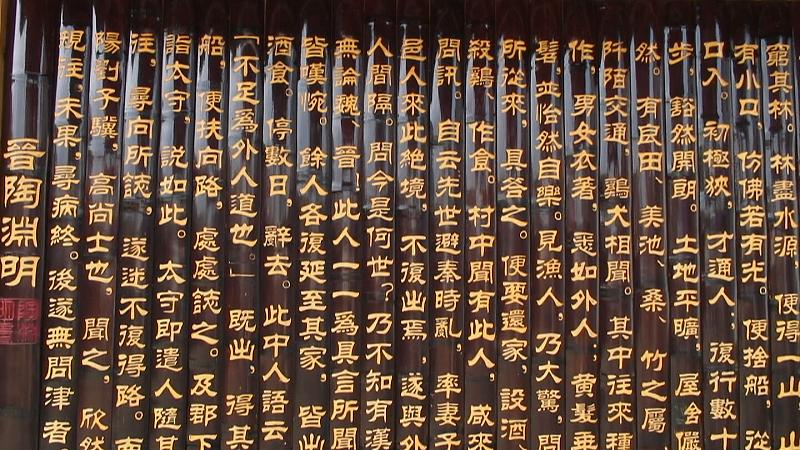 窮其林。林盡水源，便得一山，山
有小口，仿佛若有光。便捨船，從
口入。初極狹，才通人，復行數十
步，豁然開朗。土地平曠，屋舍儼
然。有良田、美池、桑、竹之屬
阡陌交通，鷄犬相聞。其中往來種
作，男女衣著，悉如外人，黃髮垂
髫，並怡然自樂。見漁人，乃大驚，問
所從來，具答之。便要還家，設酒、
殺鷄、作食。村中聞有此人，咸來
問訊。自云先世避秦時亂，率妻子
邑人來此絶境，不復出焉，遂與外
人間隔。問今是何世？乃不知有漢
無論魏、晉！此人一一爲具言所聞
皆嘆惋。餘人各復延至其家，皆出
酒食。停數日，辭去。此中人語云
「不足爲外人道也。」既出，得其
船，便扶向路，處處誌之。及郡下
詣太守，説如此。太守即遣人隨其
往，尋向所誌，遂迷不復得路。南
陽劉子驥，高尚士也，聞之，欣然
規往，未果，尋病終。後遂無問津者。
晉陶淵明